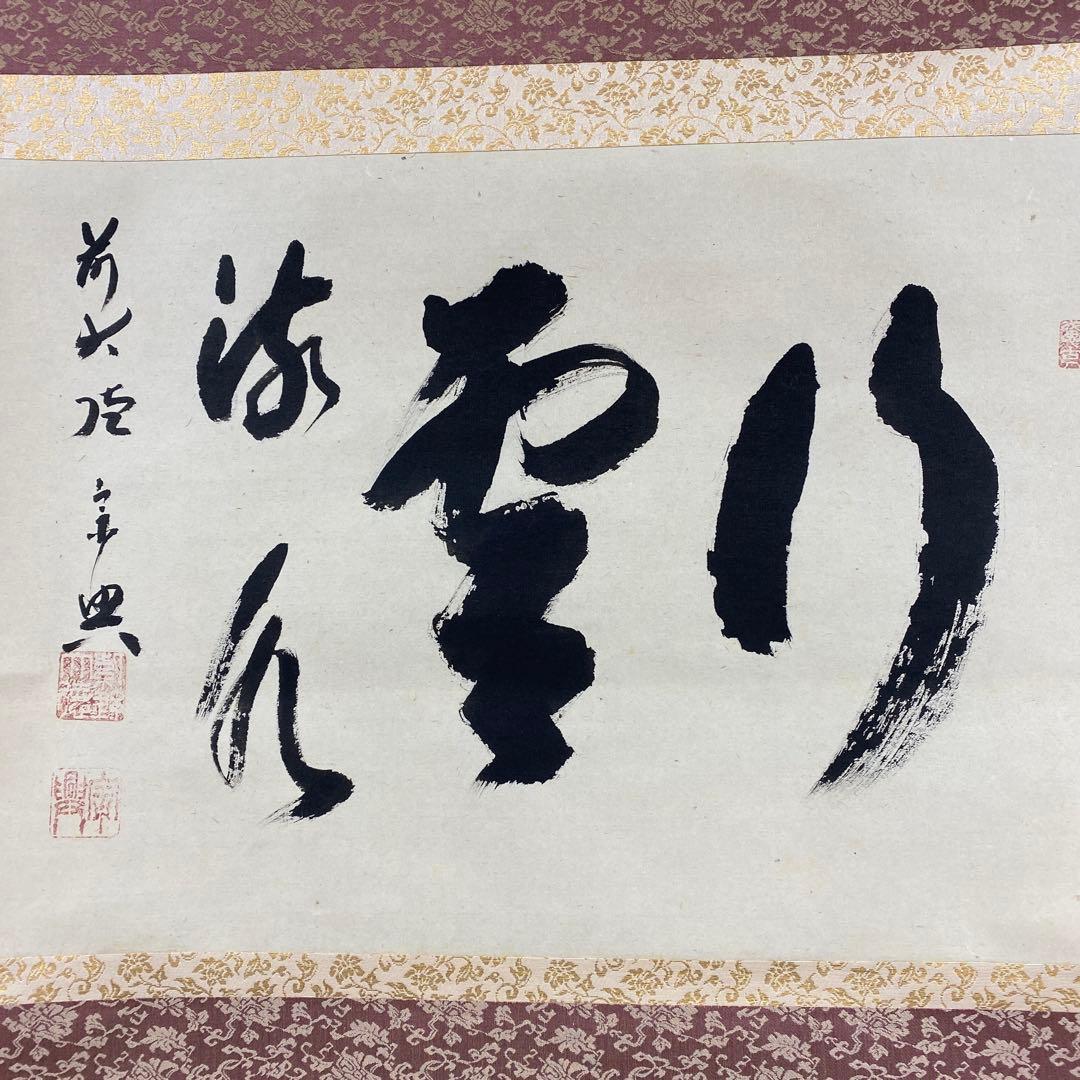 行
雲
流水
前大徳 宗興